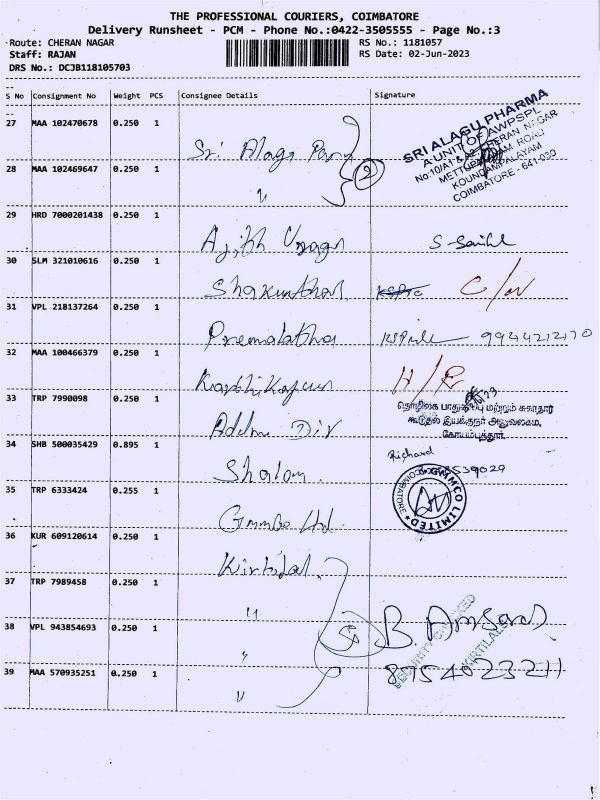 THE PROFESSIONAL COURIERS, COIMBATORE
Delivery Runsheet - PCM - Phone No.:0422-3505555 - Page No.:3
Route: CHERAN NAGAR
RS No.: 1181057
Staff: RAJAN
RS Date: 02-Jun-2023
DRS No.: DCJB118105703
S No Consignment No Weight PCS Consignee Details Signature
27 MAA 102470678 0.250 1
Sri Alagu
SRI ALAGU PHARMA
A UNIT OF AWPSPL
No:10/A1 & A2 CHERAN NAGAR
METTUPALAYAM ROAD
KOUNDAMPALAYAM
COIMBATORE - 641-030
28 MAA 102469647 0.250 1
" 2
29 HRD 7000201438 0.250 1
Ajith
30 SLM 321010616 0.250 1
Shakunthal
31 VPL 218137264 0.250 1
Premalatha 9944212170
32 MAA 100466379 0.250 1
H/R
33 TRP 7990098 0.250 1
Admn Div
தொழிலக பாதுகாப்பு மற்றும் சுகாதார
கூடுதல் இயக்குநர் அலுவலகம்,
கோயம்புத்தூர்.
34 SHB 500035429 0.895 1
Shalom Richard
35 TRP 6333424 0.255 1
Gmmco Ltd
GMMCO LIMITED
COIMBATORE
36 KUR 609120614 0.250 1
Kirtilal
37 TRP 7989458 0.250 1
"
38 VPL 943854693 0.250 1
"
SECURITY CHECKED
KIRTILALS
39 MAA 570935251 0.250 1
" 8754023211